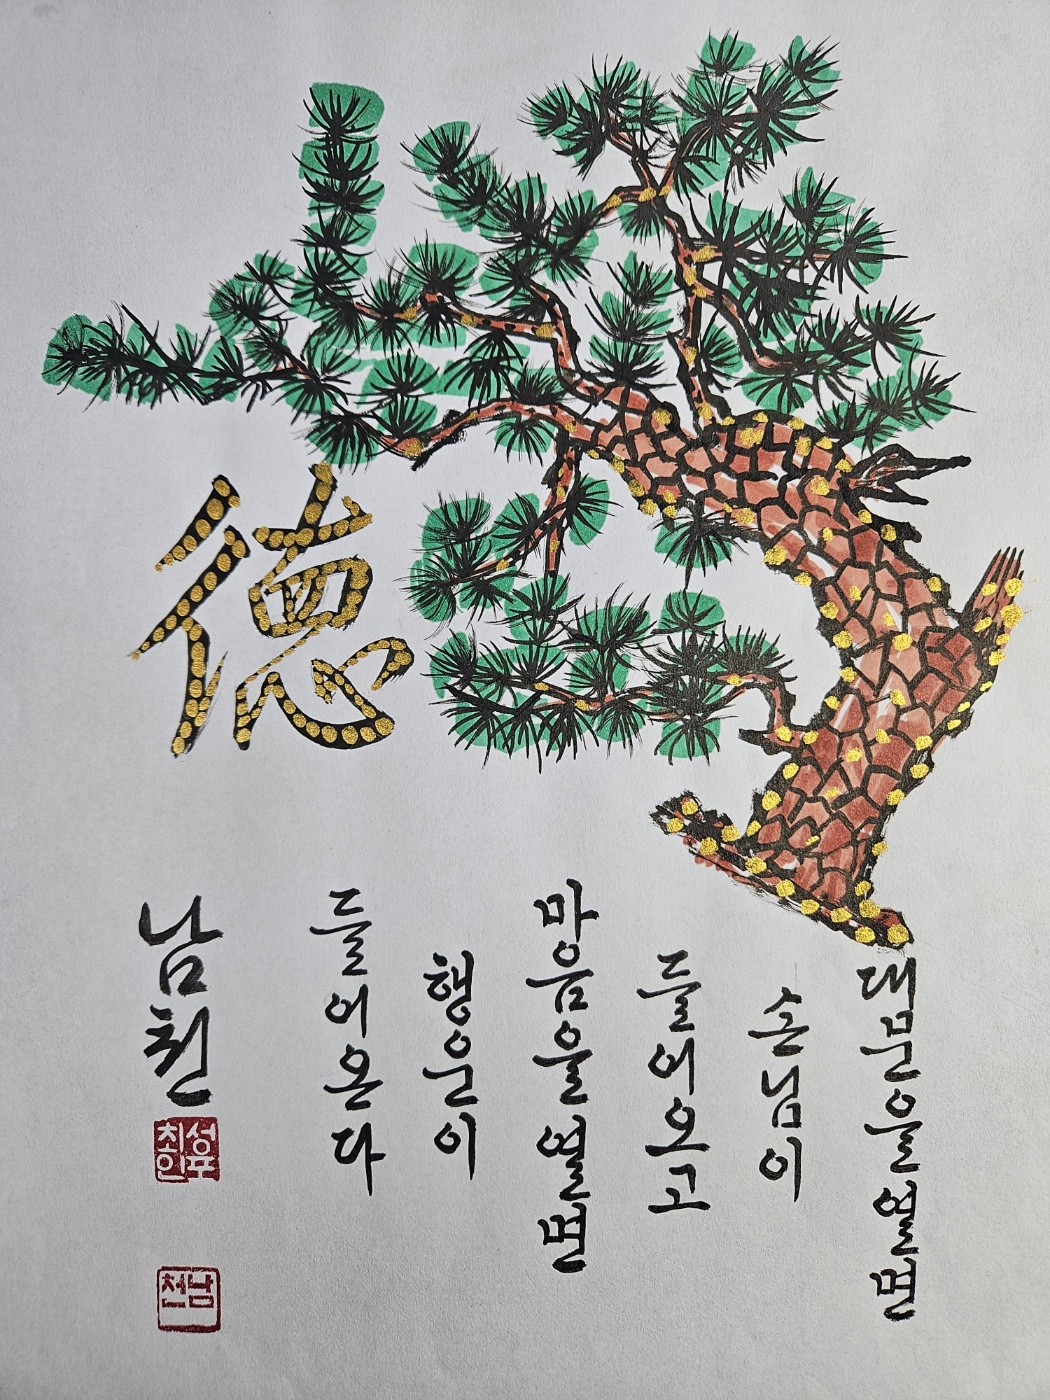 德
대문을열면
손님이
들어오고
마음을열면
행운이
들어온다
남천
남천